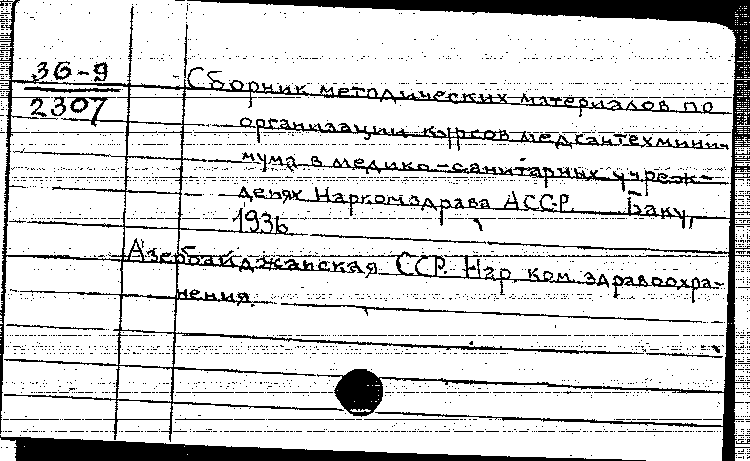 36-9
2307
Сборник методических материалов по
организации курсов медсантехмини-
мума в медико-санитарных учреж-
дениях Наркомздрава АССР. Баку,
1936
Азербайджанская ССР. Нар. ком. здравоохра-
нения.